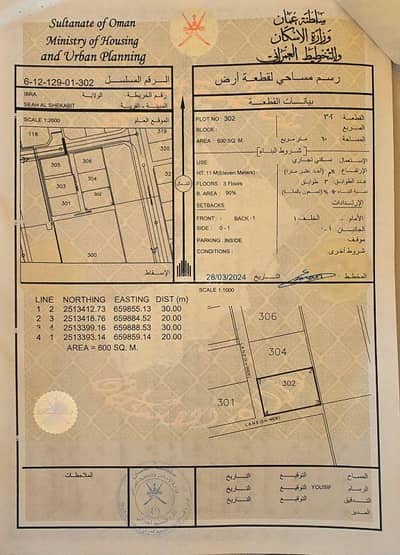 Sultanate of Oman
Ministry of Housing
and Urban Planning
سلطنة عمان
وزارة الإسكان
والتخطيط العمراني
6-12-129-01-302
الرقم المسلسل
رسم مساحي لقطعة أرض
IBRA
الولاية
رقم الخريطة
SEAH AL SHEKABIT
المدينة - القرية
بيانات القطعة
SCALE 1:2500
الموقع العام
118
305
306
304
301
302
300
300
الشمال
الإسقاط
PLOT NO : 302
القطعة :
٣٠٢
BLOCK :
المربع :
AREA : 600 SQ. M.
المساحة :
٦٠٠ متر مربع
شروط البناء
USE
الاستعمال : سكني تجاري
HT. 11 M(Eleven Meters)
FLOORS : 3 Floors
عدد الطوابق : ٣ طوابق
B. AREA : 90%
SETBACKS
الإرتدادات
FRONT : - BACK : 1
الأمام : - الخلف : ١
SIDE : 0 - 1
الجانبان : ٠ - ١
PARKING :INSIDE
موقف
شروط أخرى
28/03/2024
التاريخ
المخطط
SCALE 1:1000
LINE NORTHING EASTING DIST (m)
1 2 2513412.73 659855.13 30.00
2 3 2513418.76 659884.52 20.00
3 4 2513399.16 659888.53 30.00
4 1 2513393.14 659859.14 20.00
AREA = 600 SQ. M.
306
304
302
301
الملاحظات
المساح
التوقيع
التاريخ
الرسام
YOUSIF
التوقيع
التاريخ
التدقيق
التوقيع
التاريخ
المدير
التوقيع
التاريخ